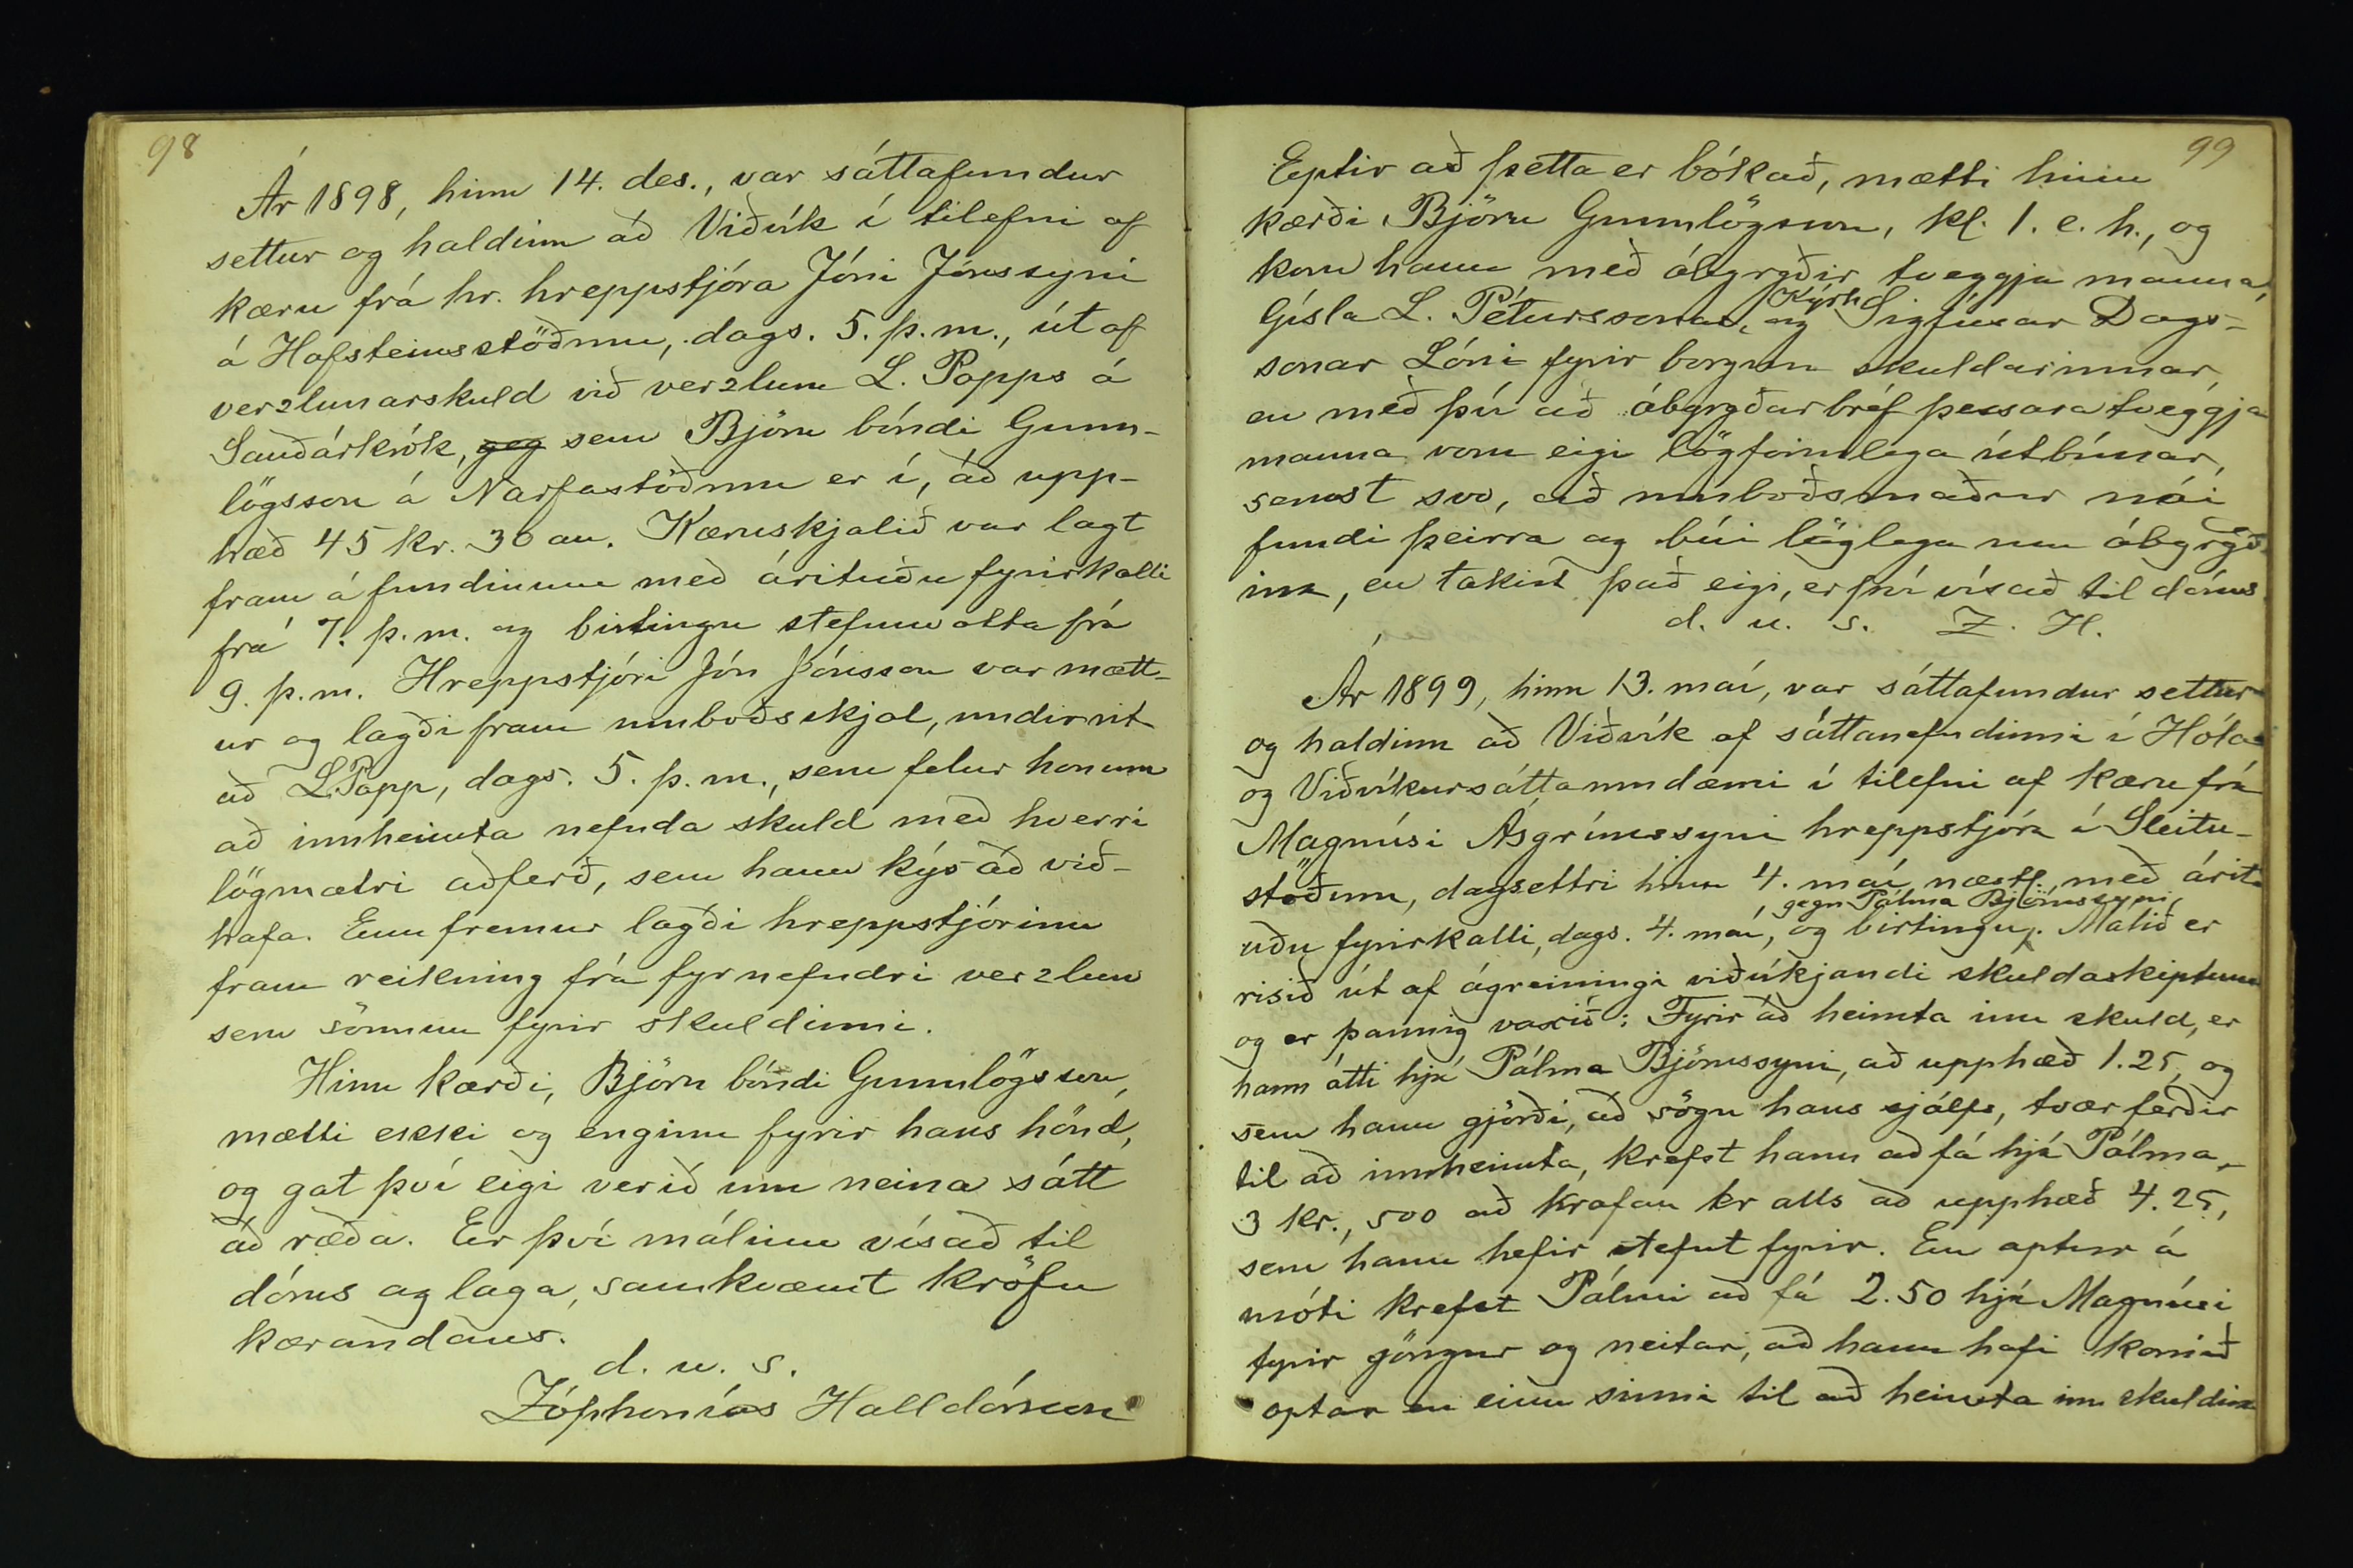 98
Ár 1898, hinn 14. des., var sáttafundur
settur og haldinn að Viðvík í tilefni af
kæru frá hr. hreppstjóra Jóni Jónssyni
á Hafsteinsstöðum, dags. 5. þ.m., út af
verzlunarskuld við verzlun L. Popps á
Sauðárkrók, geg sem Björn bóndi Gunn-
lögsson á Narfastöðum er í, að upp-
hæð 45 kr. 30 au. Kæruskjalið var lagt
fram á fundinum með árituðu fyrirkalli
frá 7. þ.m. og birtingu stefnuvotta frá
9. þ.m. Hreppstjóri Jón Jónsson var mætt-
ur og lagði fram umboðsskjal, undirrit
að L. Popp, dags. 5. þ.m., sem felur honum
að innheimta nefnda skuld með hverri
lögmætri aðferð, sem hann kýs að við-
hafa. Enn fremur lagði hreppstjórinn
fram reikning frá fyrnefndri verzlun
sem sönnun fyrir skuldinni.
Hinn kærði, Björn bóndi Gunnlögsson,
mætti ekki og enginn fyrir hans hönd,
og gat því eigi verið um neina sátt
að ræða. Er því málinu vísað til
dóms og laga, samkvæmt kröfu
kærandans.
d. u. s.
Zóphonías Halldórsson
99
Eptir að þetta er bókað, mætti hinn
kærði Björn Gunnlögsson, kl. 1. e. h., og
kom hann með ábyrgðir tveggja manna,
Gísla L. Péturssonar, Kýrh. og Sigfúsar Dags-
sonar Lóni fyrir borgun skuldarinnar,
en með því að ábyrgðarbréf þessara tveggja
manna voru eigi lögformlega útbúnar,
semst svo, að umboðsmaður nái
fundi þeirra og búi löglega um ábyrgð-
ina, en takist það eigi, er því vísað til dóms
d. u. s. Z. H.
Ár 1899, hinn 13. maí, var sáttafundur settur
og haldinn að Viðvík af sáttanefndinni í Hóla
og Viðvíkursáttaumdæmi í tilefni af kæru frá
Magnúsi Ásgrímssyni hreppstjóra í Sleitu-
stöðum, dagsettri hinn 4. maí næstl. með árit-
gegn Pálma Björnssyni,
uðu fyrirkalli, dags. 4. maí, og birtingu. Málið er
risið út af ágreiningi viðvíkjandi skuldaskiptum
og er þannig vaxið: Fyrir að heimta inn skuld, er
hann átti hjá Pálma Björnssyni, að upphæð 1.25, og
sem hann gjörði, að sögn hans sjálfs, tvær ferðir
til að innheimta, krefst hann að fá hjá Pálma
3 kr., svo að krafan er alls að upphæð 4.25,
sem hann hefir stefnt fyrir. En aptur á
móti krefst Pálmi að fá 2.50 hjá Magnúsi
fyrir göngur og neitar, að hann hafi komið
optar en einu sinni til að heimta inn skuldina